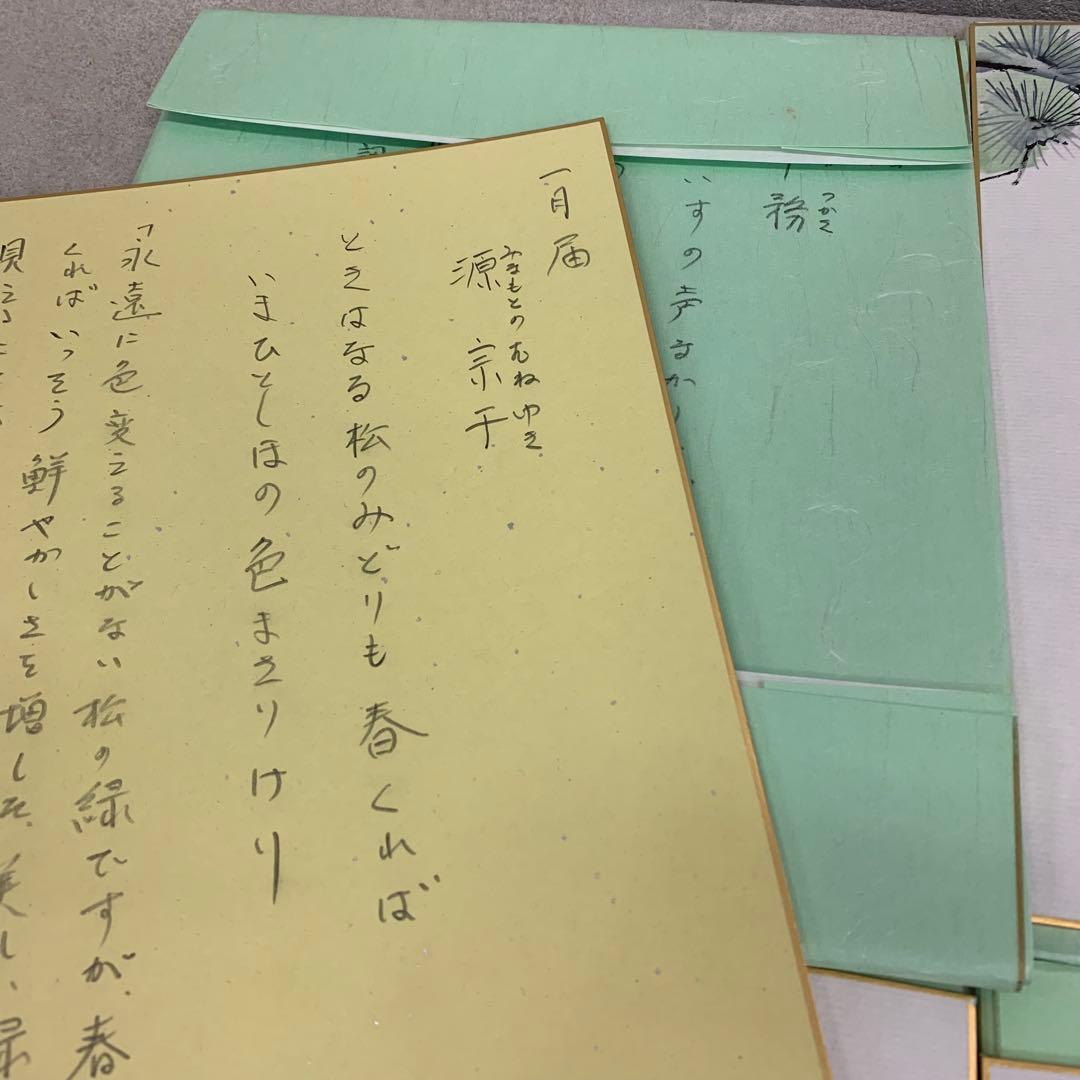 一月届
源宗于
みなもとのむねゆき
ときはなる松のみどりも春くれば
いまひとしほの色まさりけり
「永遠に色変えることがない松の緑ですが、春
くればいっそう鮮やかしさを増して、美しい緑
務
つかさ
すの声なか